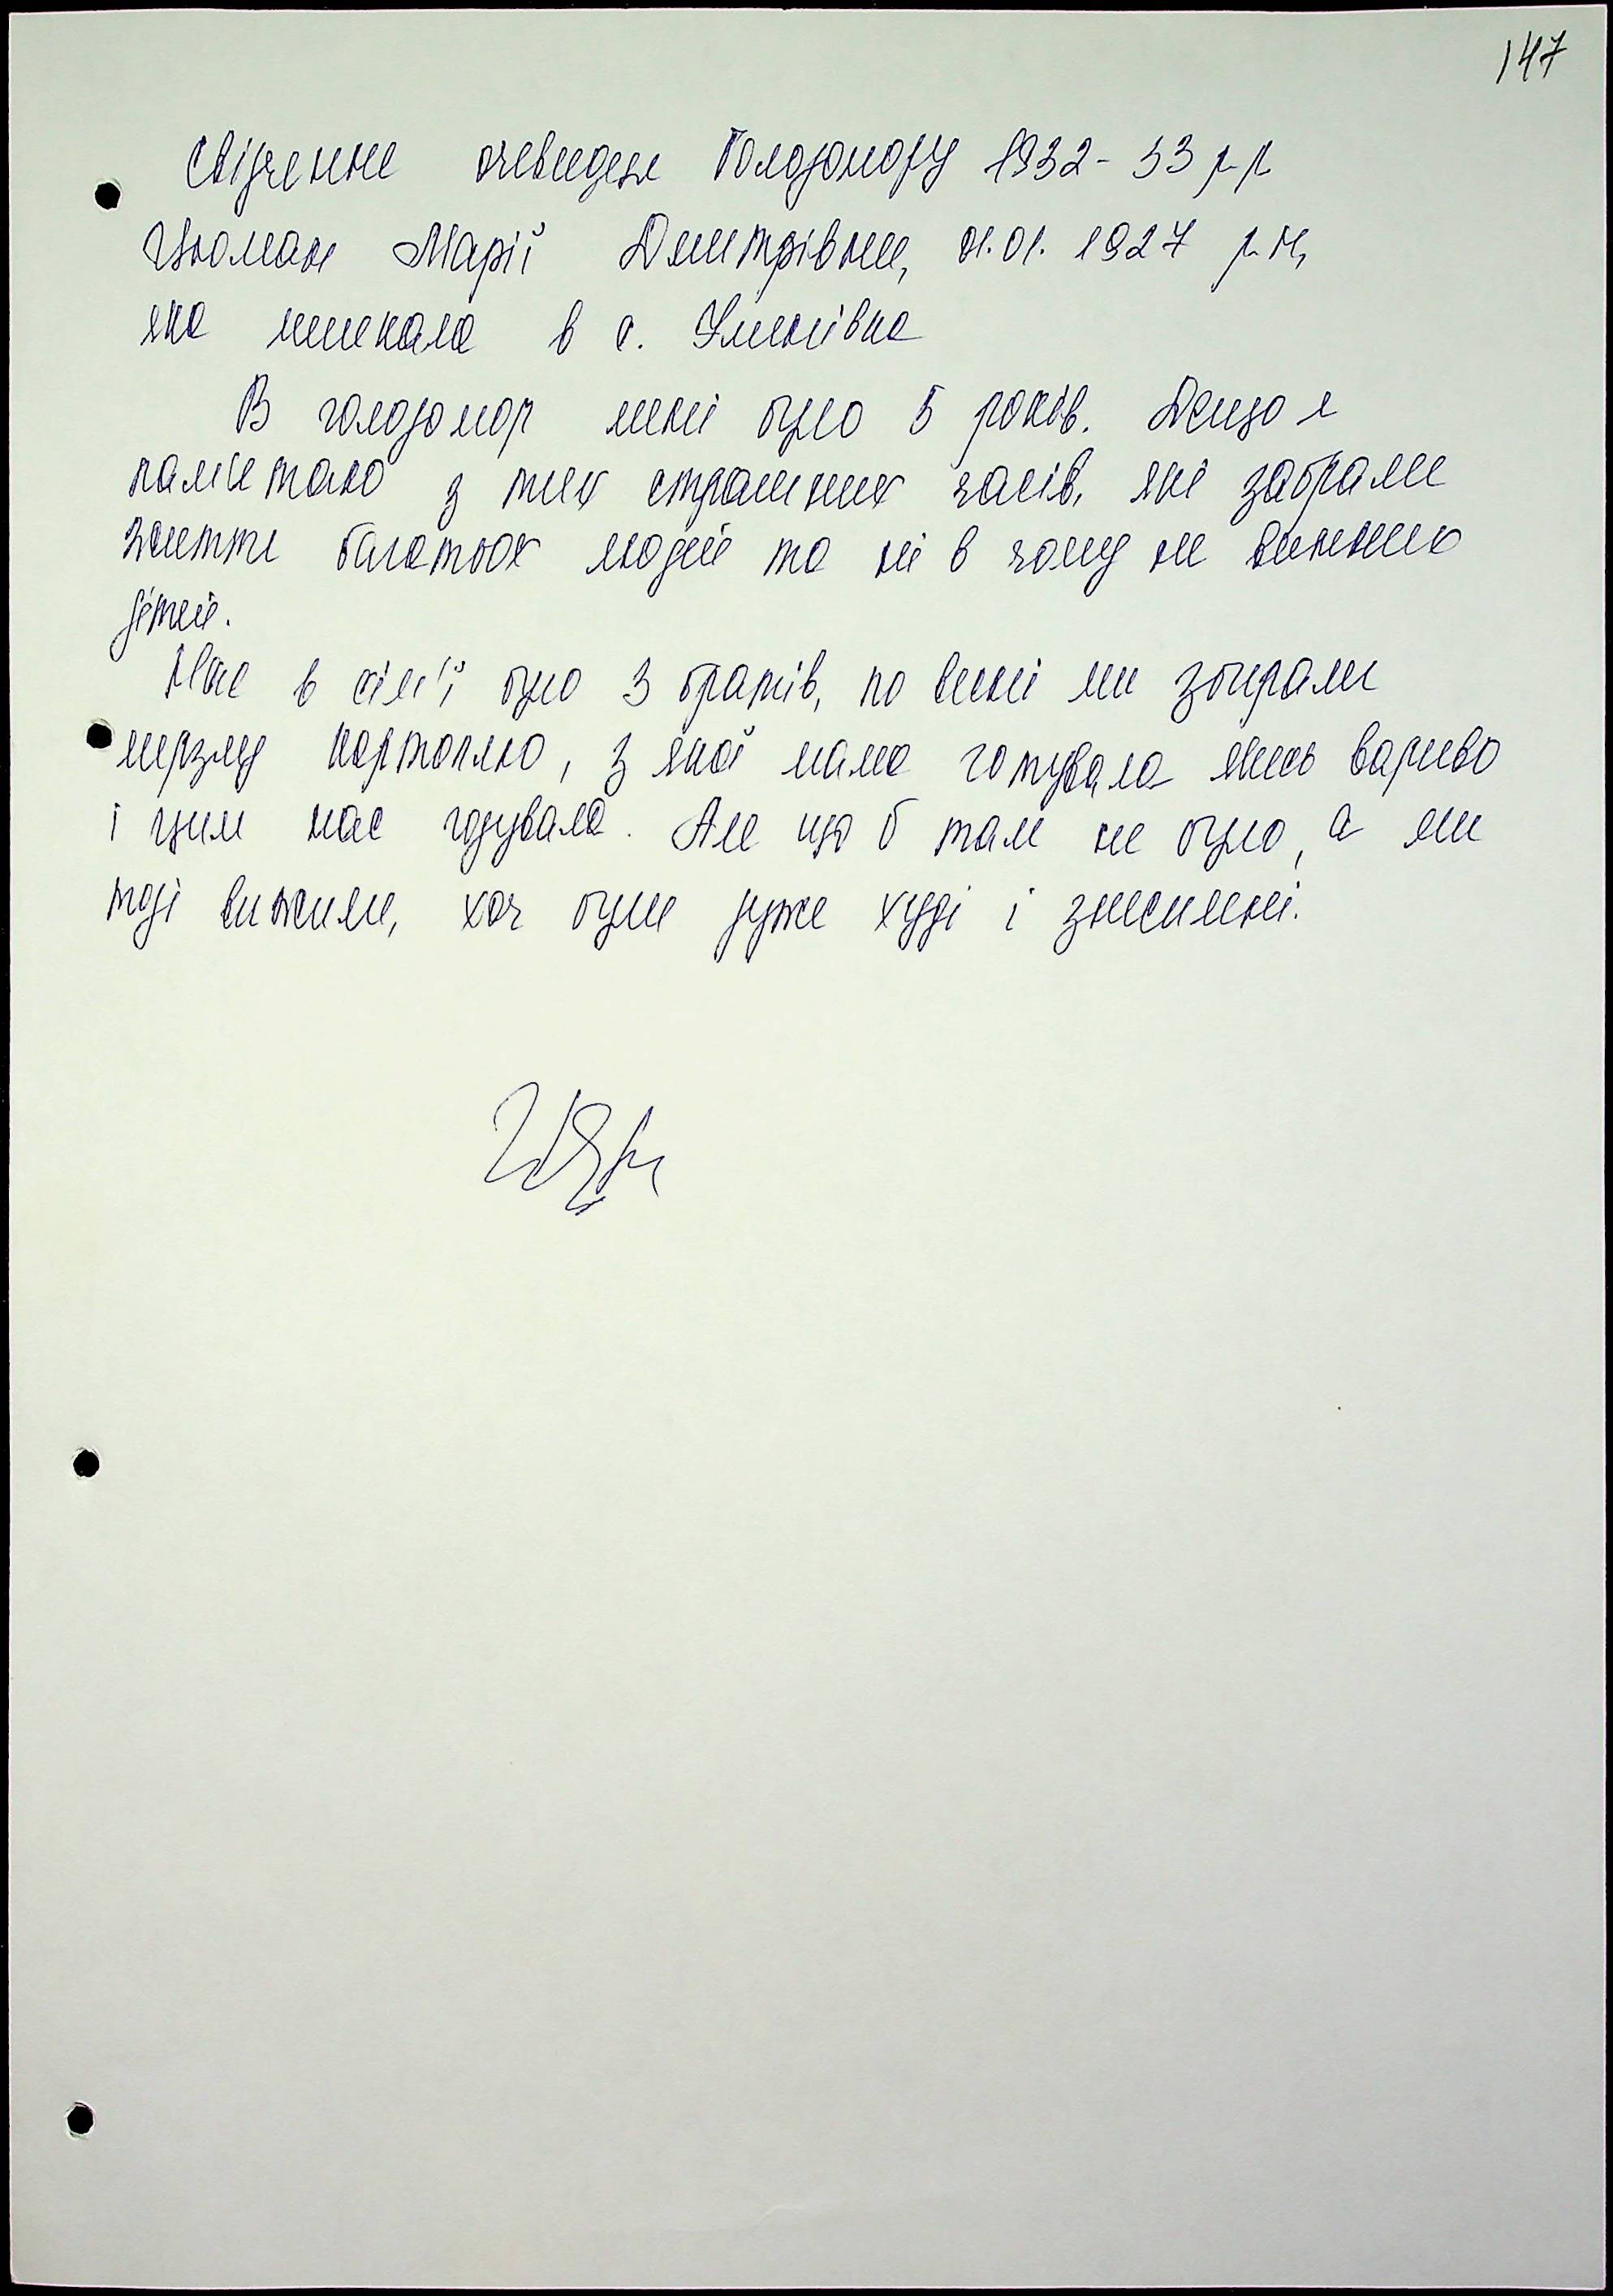 147
Свідчення очевидця Голодомору 1932-33 р.р
Цюман Марії Дмитрівни, 01.01. 1927 р.н,
яка мешкала в с. Улянівка
В голодомор мені було 5 років. Дещо я
пам'ятаю з тих страшних часів, які забрали
життя багатьох людей та ні в чому не винних
дітей.
Нас в сім'ї було 3 братів, по весні ми збирали
мерзлу картоплю, з якої мама готувала якесь варево
і цим нас годувала. Але що б там не було, а ми
тоді вижили, хоч були дуже худі і знесилені.